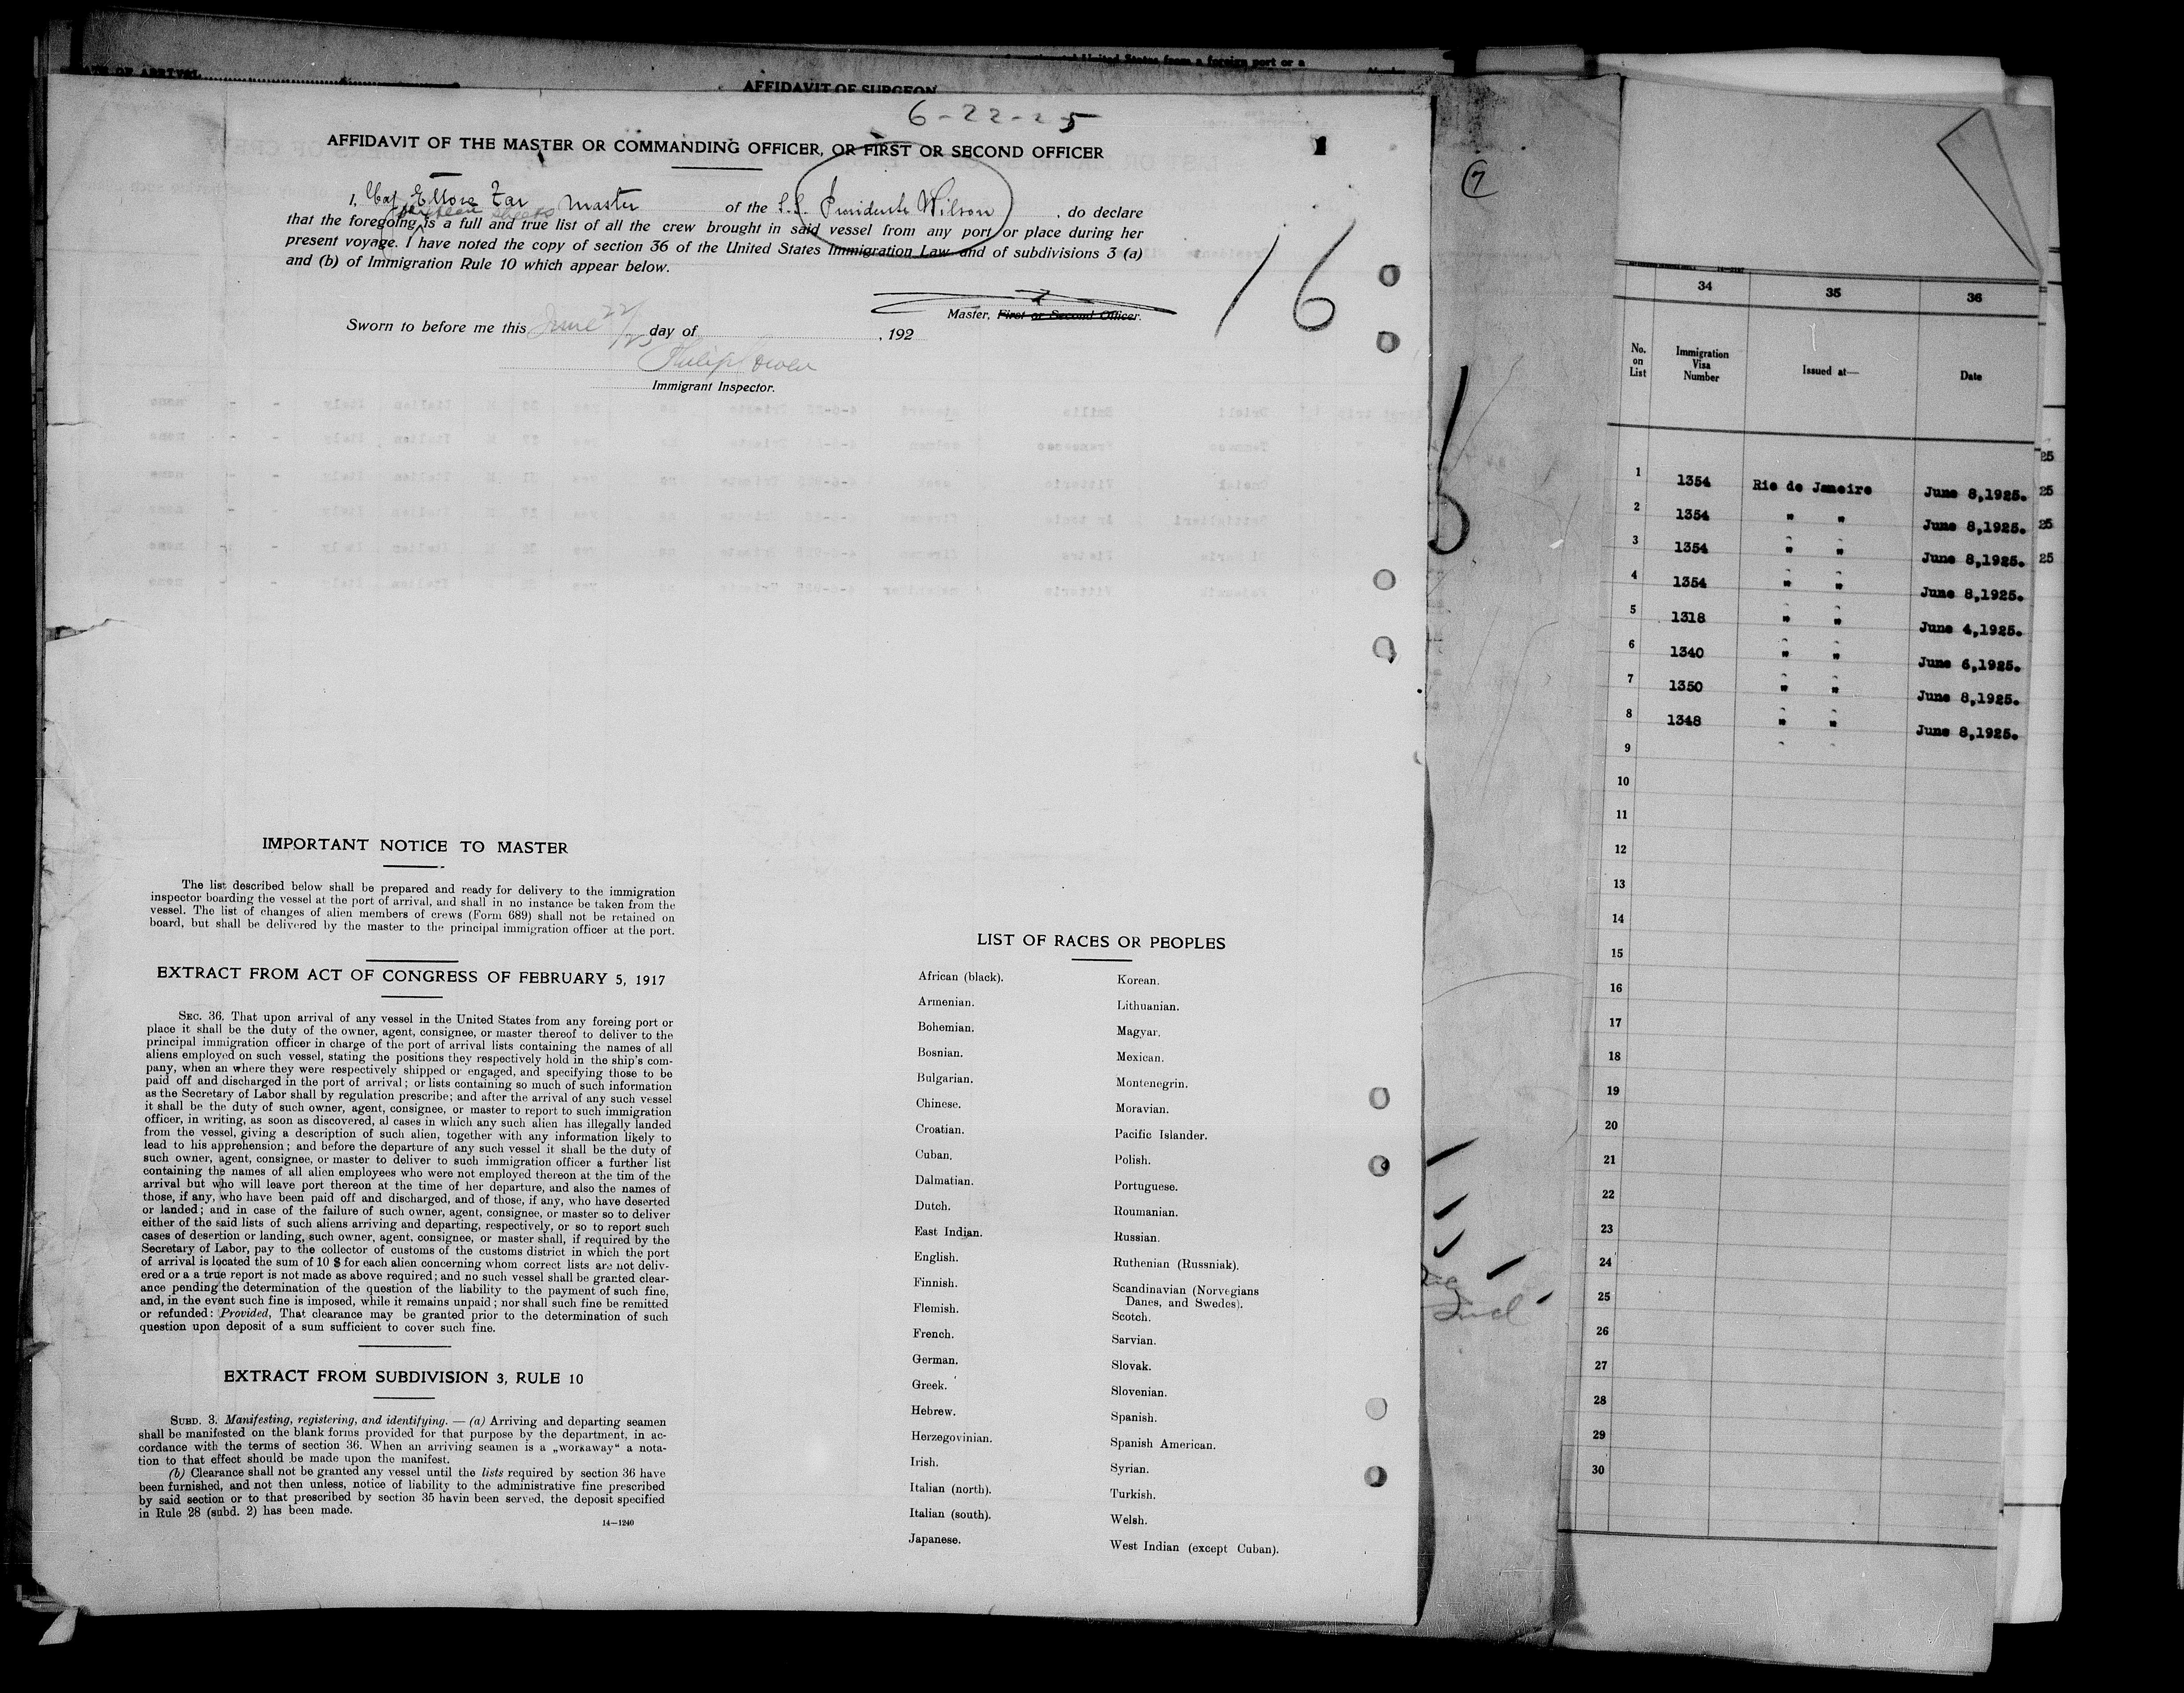 AFFIDAVIT OF SURGEON
6-22-25
AFFIDAVIT OF THE MASTER OR COMMANDING OFFICER, OR FIRST OR SECOND OFFICER
I, Ettore Zar Master of the S.S. Presidente Wilson, do declare
that the foregoing is a full and true list of all the crew brought in said vessel from any port or place during her
present voyage. I have noted the copy of section 36 of the United States Immigration Law and of subdivisions 3 (a)
and (b) of Immigration Rule 10 which appear below.
16
Master, First or Second Officer.
Sworn to before me this June 22/25 day of , 192
Philip
Immigrant Inspector.
IMPORTANT NOTICE TO MASTER
The list described below shall be prepared and ready for delivery to the immigration
inspector boarding the vessel at the port of arrival, and shall in no instance be taken from the
vessel. The list of changes of alien members of crews (Form 689) shall not be retained on
board, but shall be delivered by the master to the principal immigration officer at the port.
EXTRACT FROM ACT OF CONGRESS OF FEBRUARY 5, 1917
SEC. 36. That upon arrival of any vessel in the United States from any foreing port or
place it shall be the duty of the owner, agent, consignee, or master thereof to deliver to the
principal immigration officer in charge of the port of arrival lists containing the names of all
aliens employed on such vessel, stating the positions they respectively hold in the ship's com-
pany, when an where they were respectively shipped or engaged, and specifying those to be
paid off and discharged in the port of arrival; or lists containing so much of such information
as the Secretary of Labor shall by regulation prescribe; and after the arrival of any such vessel
it shall be the duty of such owner, agent, consignee, or master to report to such immigration
officer, in writing, as soon as discovered, al cases in which any such alien has illegally landed
from the vessel, giving a description of such alien, together with any information likely to
lead to his apprehension; and before the departure of any such vessel it shall be the duty of
such owner, agent, consignee, or master to deliver to such immigration officer a further list
containing the names of all alien employees who were not employed thereon at the tim of the
arrival but who will leave port thereon at the time of her departure, and also the names of
those, if any, who have been paid off and discharged, and of those, if any, who have deserted
or landed; and in case of the failure of such owner, agent, consignee, or master so to deliver
either of the said lists of such aliens arriving and departing, respectively, or so to report such
cases of desertion or landing, such owner, agent, consignee, or master shall, if required by the
Secretary of Labor, pay to the collector of customs of the customs district in which the port
of arrival is located the sum of 10 $ for each alien concerning whom correct lists are not deliv-
ered or a a true report is not made as above required; and no such vessel shall be granted clear-
ance pending the determination of the question of the liability to the payment of such fine,
and, in the event such fine is imposed, while it remains unpaid; nor shall such fine be remitted
or refunded: Provided, That clearance may be granted prior to the determination of such
question upon deposit of a sum sufficient to cover such fine.
EXTRACT FROM SUBDIVISION 3, RULE 10
SUBD. 3. Manifesting, registering, and identifying. — (a) Arriving and departing seamen
shall be manifested on the blank forms provided for that purpose by the department, in ac-
cordance with the terms of section 36. When an arriving seamen is a „workaway“ a nota-
tion to that effect should be made upon the manifest.
(b) Clearance shall not be granted any vessel until the lists required by section 36 have
been furnished, and not then unless, notice of liability to the administrative fine prescribed
by said section or to that prescribed by section 35 havin been served, the deposit specified
in Rule 28 (subd. 2) has been made.
14—1240
LIST OF RACES OR PEOPLES
African (black). Korean.
Armenian. Lithuanian.
Bohemian. Magyar.
Bosnian. Mexican.
Bulgarian. Montenegrin.
Chinese. Moravian.
Croatian. Pacific Islander.
Cuban. Polish.
Dalmatian. Portuguese.
Dutch. Roumanian.
East Indian. Russian.
English. Ruthenian (Russniak).
Finnish. Scandinavian (Norvegians
Danes, and Swedes).
Flemish. Scotch.
French. Sarvian.
German. Slovak.
Greek. Slovenian.
Hebrew. Spanish.
Herzegovinian. Spanish American.
Irish. Syrian.
Italian (north). Turkish.
Italian (south). Welsh.
Japanese. West Indian (except Cuban).
7
34 35 36
No. on List Immigration Visa Number Issued at— Date
1 1354 Rio de Janeiro June 8,1925.
2 1354 " " June 8,1925.
3 1354 " " June 8,1925.
4 1354 " " June 8,1925.
5 1318 " " June 4,1925.
6 1340 " " June 6,1925.
7 1350 " " June 8,1925.
8 1348 " " June 8,1925.
9
10
11
12
13
14
15
16
17
18
19
20
21
22
23
24
25
26
27
28
29
30
25
25
25
25